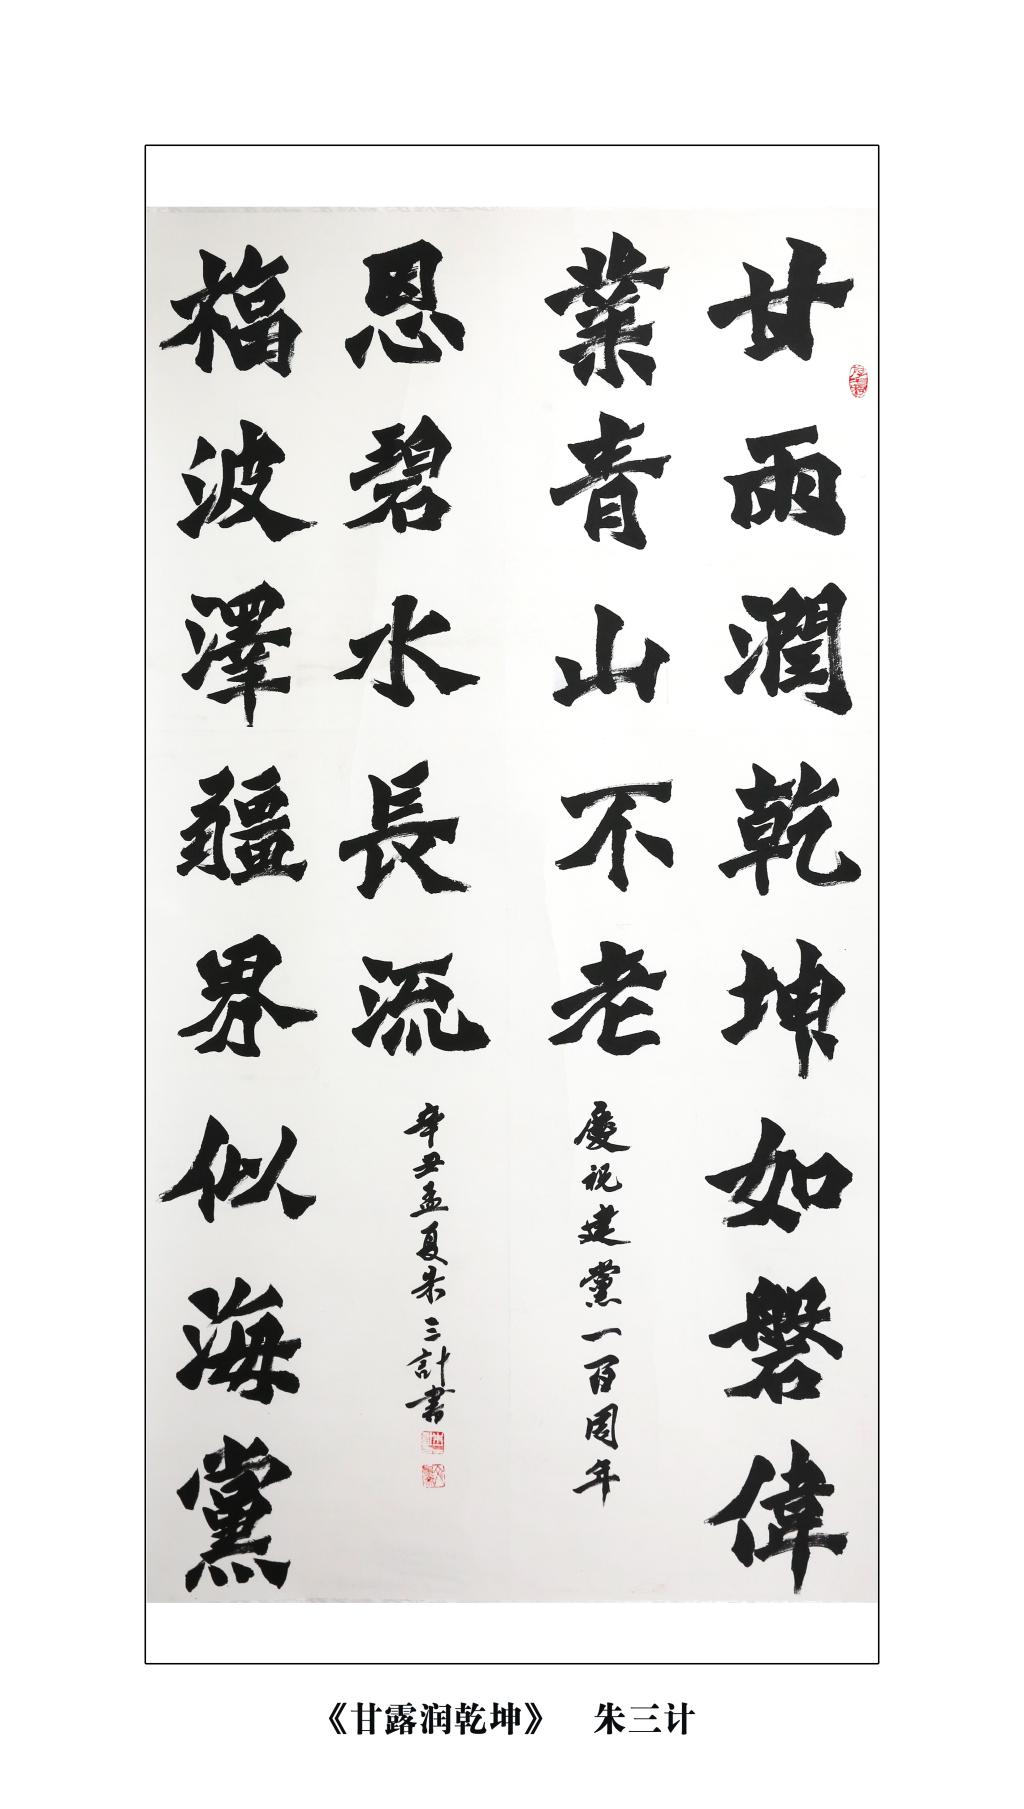 甘雨潤乾坤如磐偉
業青山不老
慶祝建黨一百周年
福波澤疆界似海黨
恩碧水長流
辛丑孟夏朱三計書
《甘露润乾坤》 朱三计